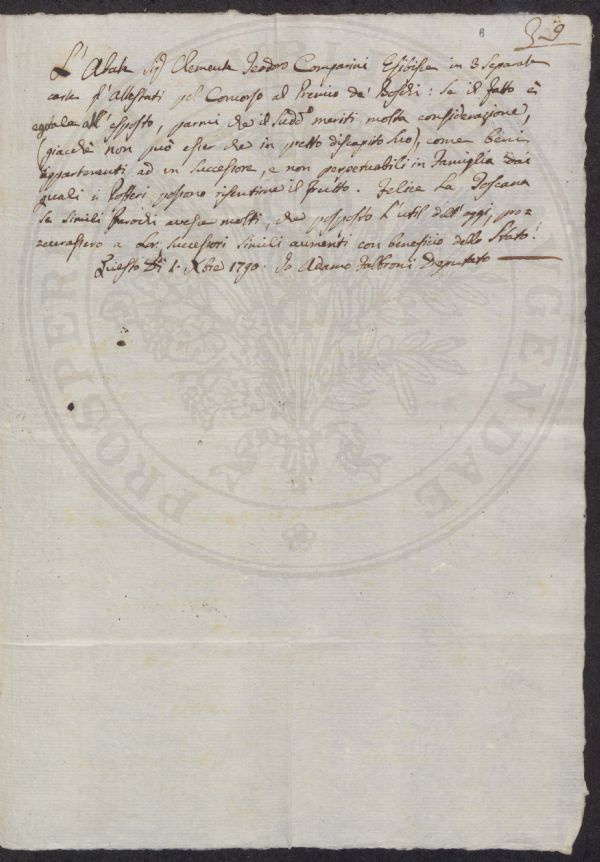 8
329
L'Abate Sig Clemente Teodoro Comparini Esibisce in 3 Separate
carte gl'Attestati pel Concorso al Premio de' Boschi: Se il fatto è
eguale all'esposto, parmi che il Sudd.o meriti molta considerazione,
giacchè non può esser che in pretto discapito Suo, come beni
appartenenti ad un Successore, e non perpetuabili in Famiglia dai
quali i Posteri possono risentirne il frutto. Felice La Toscana
Se Simili Parochi avesse molti, che posposto l'util dell'oggi, pro=
=curassero a Lor Successori Simili aumenti con beneficio dello Stato!
Questo Dì 1. Xbre 1790. Io Adamo Fabbroni Deputato
PROSPER AGENDAE